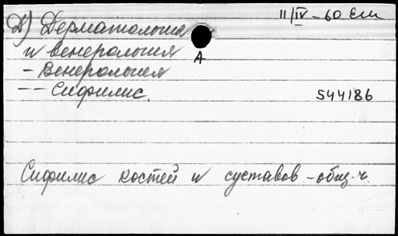 II/IV-60 Em
D) Дерматология
A
и венерология
- Венерология
-- Сифилис.
544186
Сифилис костей и суставов - общ. ч.